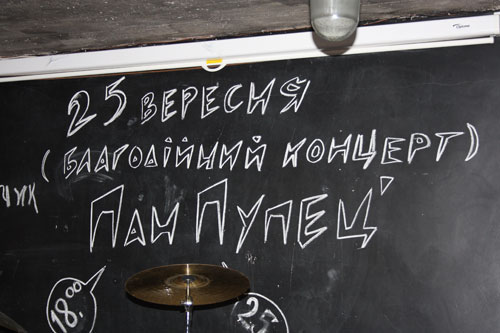 25 ВЕРЕСНЯ
(БЛАГОДІЙНИЙ КОНЦЕРТ)
ЧИК
ПАН ПУПЕЦ'
18.00